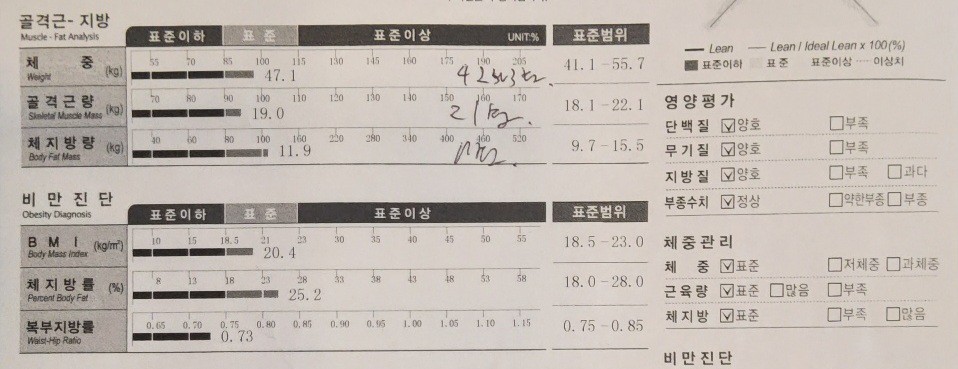 골격근-지방
Muscle - Fat Analysis
표준이하 표준 표준이상 UNIT:% 표준범위
체중 (kg)
Weight
55 70 85 100 115 130 145 160 175 190 205
47.1
41.1-55.7
골격근량 (kg)
Skeletal Muscle Mass
70 80 90 100 110 120 130 140 150 160 170
19.0
18.1-22.1
체지방량 (kg)
Body Fat Mass
40 60 80 100 160 220 280 340 400 460 520
11.9
9.7-15.5
비만진단
Obesity Diagnosis
표준이하 표준 표준이상 표준범위
BMI (kg/m²)
Body Mass Index
10 15 18.5 21 23 30 35 40 45 50 55
20.4
18.5-23.0
체지방률 (%)
Percent Body Fat
8 13 18 23 28 33 38 43 48 53 58
25.2
18.0-28.0
복부지방률
Waist-Hip Ratio
0.65 0.70 0.75 0.80 0.85 0.90 0.95 1.00 1.05 1.10 1.15
0.73
0.75-0.85
Lean Lean / Ideal Lean x 100(%)
표준이하 표준 표준이상 이상치
영양평가
단백질 양호 부족
무기질 양호 부족
지방질 양호 부족 과다
부종수치 정상 약한부종 부종
체중관리
체중 표준 저체중 과체중
근육량 표준 많음 부족
체지방 표준 부족 많음
비만진단